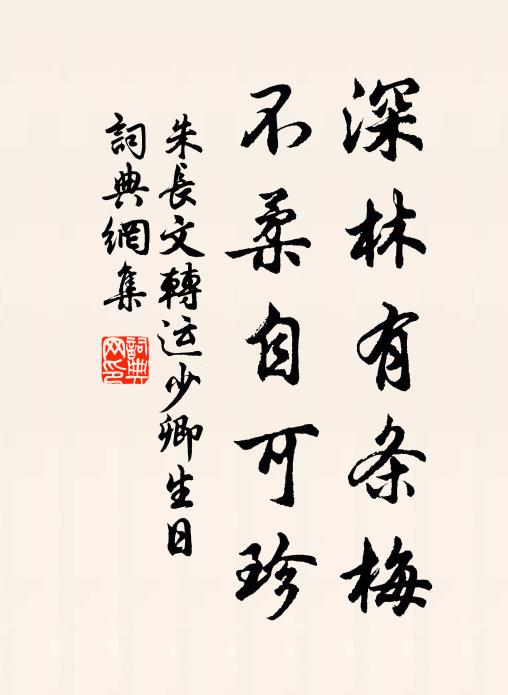 深林有条梅
不柔自可珍
朱長文轉运少卿生日
詞典網集
詞典網印